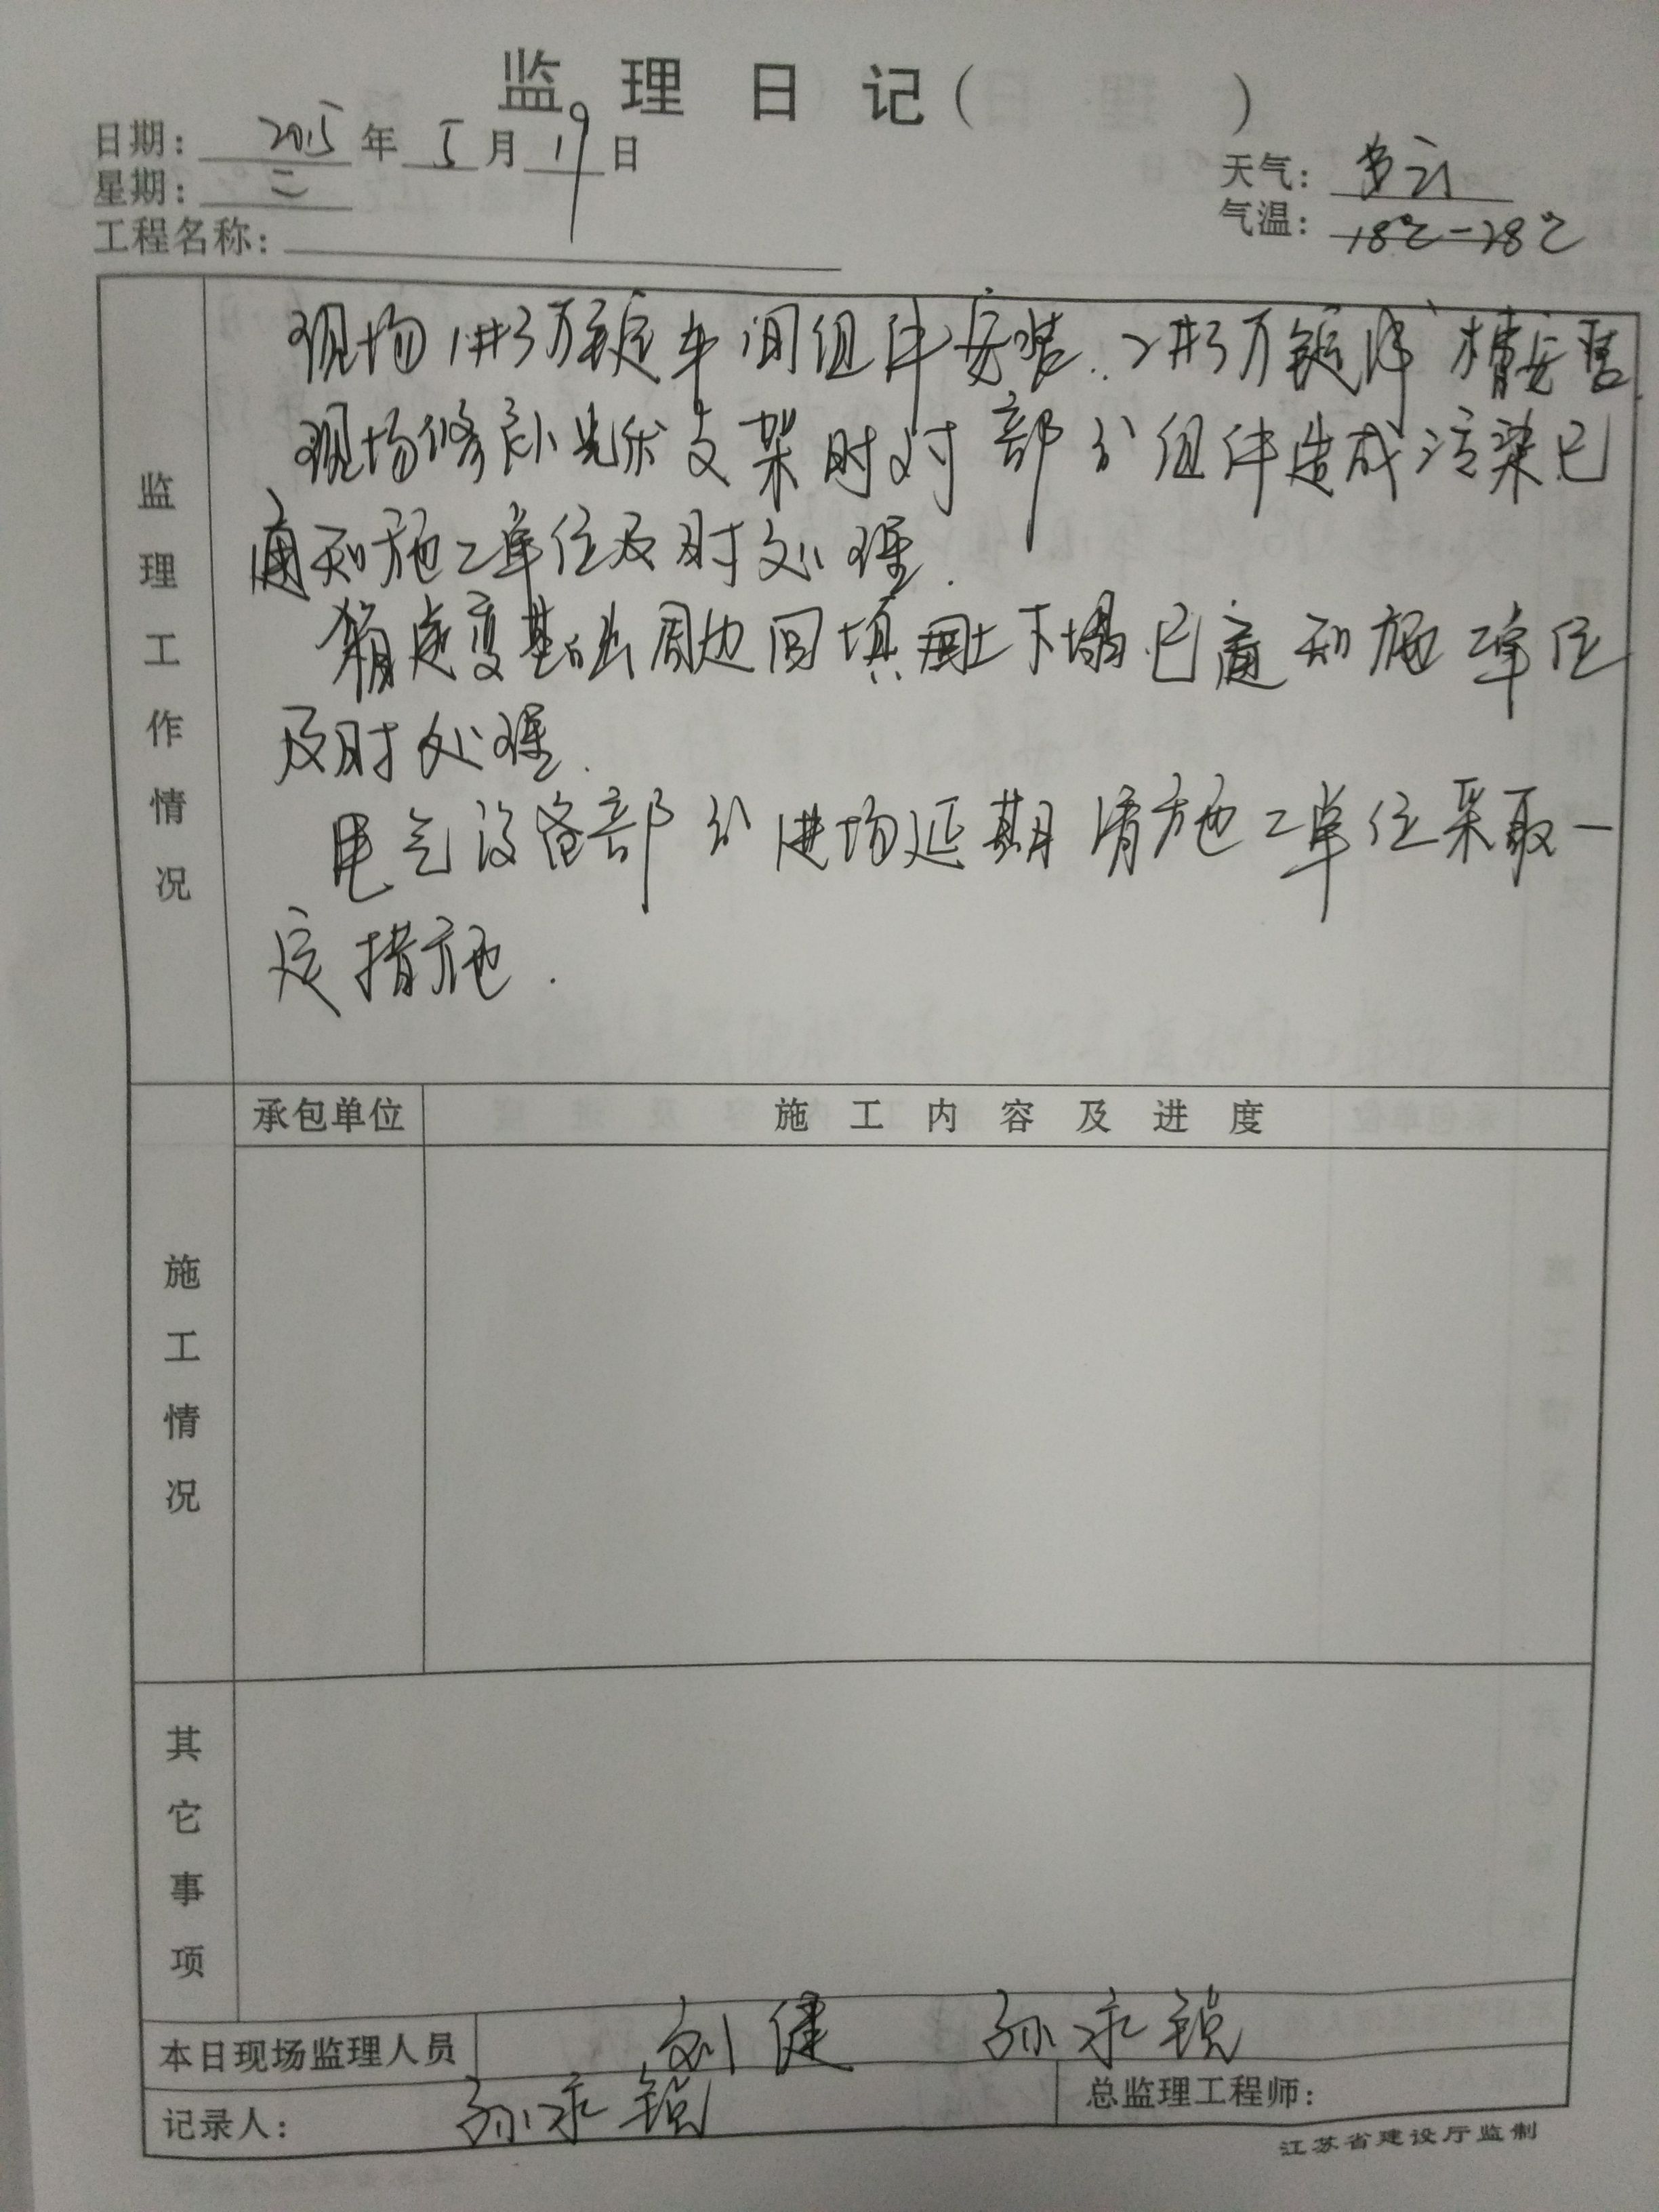 监理日记( )
日期: 2015年5月19日
星期: 二
天气: 多云
气温: 18℃-28℃
工程名称:
监理工作情况
现场1#3万锭车间组件安装.2#3万锭洋槽安装.
现场修补光伏支架时对部分组件造成污染已
通知施工单位及时处理.
箱逆变基础周边回填土下塌已通知施工单位
及时处理.
电气设备部分进场延期请施工单位采取一
定措施.
承包单位 施工内容及进度
施工情况
其它事项
本日现场监理人员 刘健 孙永锁
记录人: 孙永锁 总监理工程师:
江苏省建设厅监制